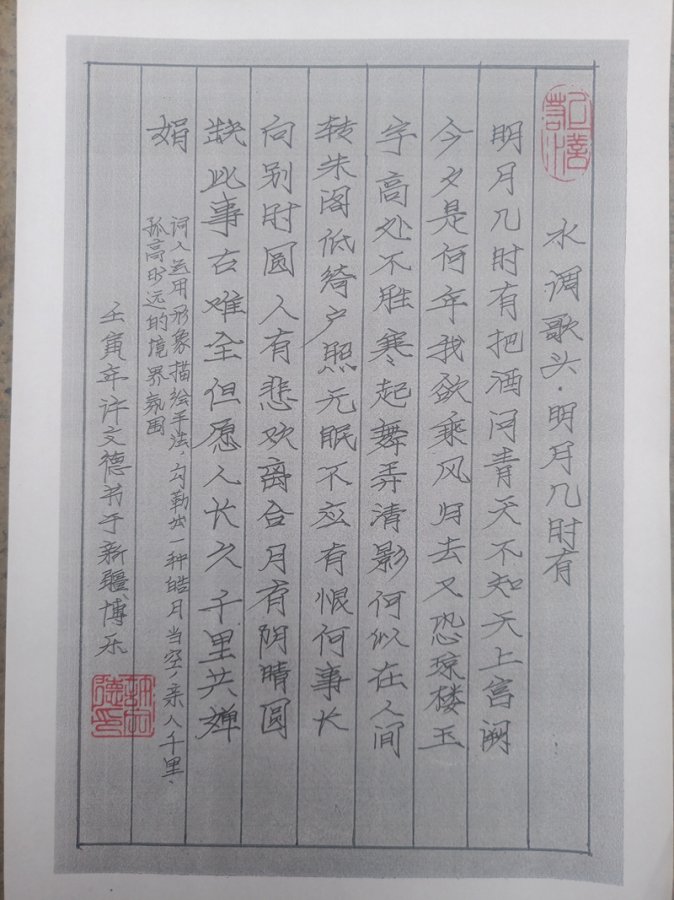 水调歌头·明月几时有
明月几时有把酒问青天不知天上宫阙
今夕是何年我欲乘风归去又恐琼楼玉
宇高处不胜寒起舞弄清影何似在人间
转朱阁低绮户照无眠不应有恨何事长
向别时圆人有悲欢离合月有阴晴圆
缺此事古难全但愿人长久千里共婵
娟
词人运用形象描绘手法，勾勒出一种皓月当空，亲人千里，
孤高旷远的境界氛围
壬寅年许文德书于新疆博乐